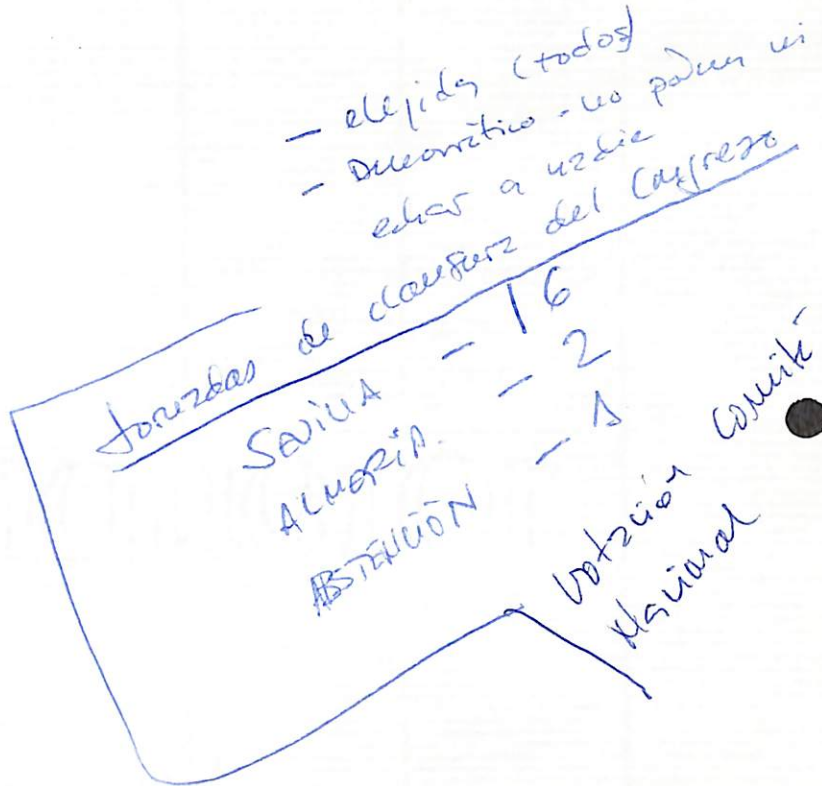 - elejidas (todos)
- Democrático - no podían ni
echar a nadie
Jornadas de clausura del Congreso
SEVILLA - 16
ALMERÍA. - 2
ABSTENCIÓN - 1
Votación Comité
Nacional